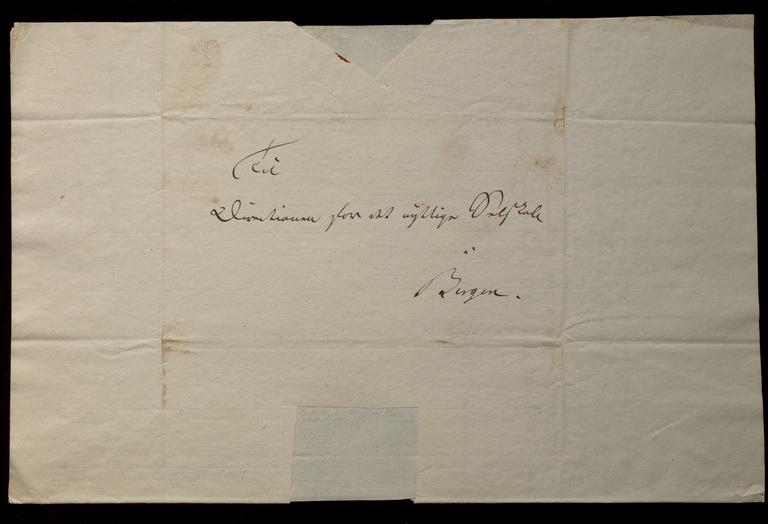 Til
Directionen for det nyttige Selskab
i
Bergen.